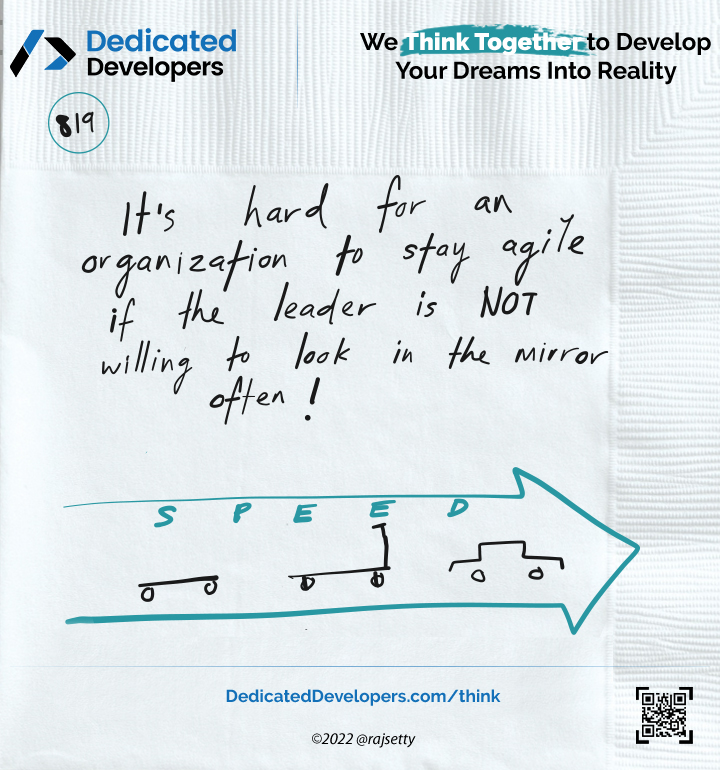 Dedicated
Developers
We Think Together to Develop
Your Dreams Into Reality
819
It's hard for an
organization to stay agile
if the leader is NOT
willing to look in the mirror
often!
S P E E D
DedicatedDevelopers.com/think
©2022 @rajsetty